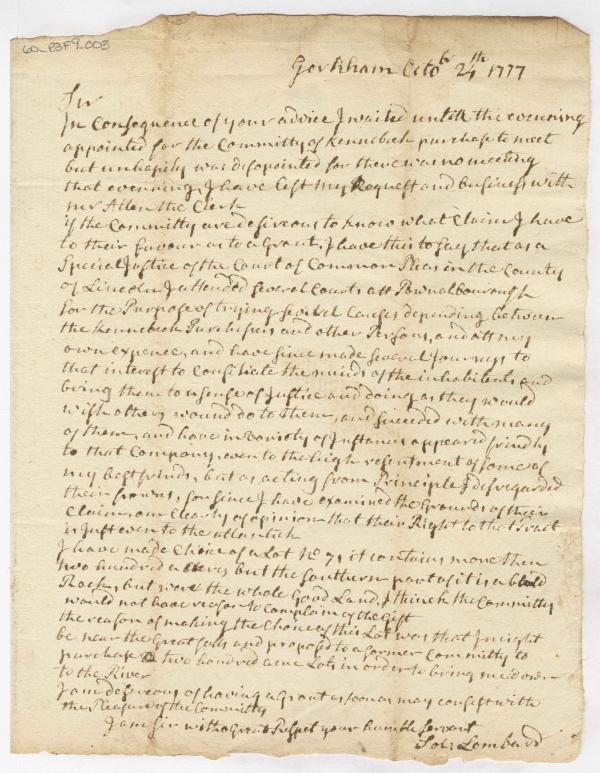 60_23F9_003
Gorkham Octobr 24th 1777
Sir
In Consequence of your advice I waited untill the evening
appointed for the Committy of Kennebeck purchase to meet
but unhapily was disapointed for there was no meeting
that evenning, I have left my Request and business with
mr Allen the Clerk
if the Committy are desireous to know what Claim I have
to their favour as to a Grant, I have this to say that as a
Special Justice of the Court of Common Pleas in the County
of Lincoln I attended several Courts att Pownalbourough
for the Purpose of trying several Causes depending between
the Kennebeck Purchesers and other Persons, and att my
own expence, and have since made several Journeys to
that interest to Consiliate the minds of the inhabitents and
bring them to a sense of Justice and doing as they would
wish others wound do to Them, and suceeded with many
of them, and have in Variety of Instances appeared frindly
to that Company, even to the high resentment of some of
my best frinds, but as acting from Principle I disregarded
their frowns, for since I have examined the Grounds of their
Claim am Clearly of opinion that their Right to that Tract
is Just even to the atlantick
I have made Choice of a Lot No 7, it contains more then
two hundred acres but the southern part of it is a bald
Rock, but were the whole Good Land, I think the Committy
would not have reason to Complain of the Gift
the reason of making the Choice of this Lot was that I might
be near the Great falls and proposed to a former Committy to
purchase two hundred acre Lots in order to bring me down
to the River
I am desireous of having a Grant as soon as may consist with
the Pleasure of the Committy
I am Sir with a Great Respet your humble Servant
Sol: Lombard